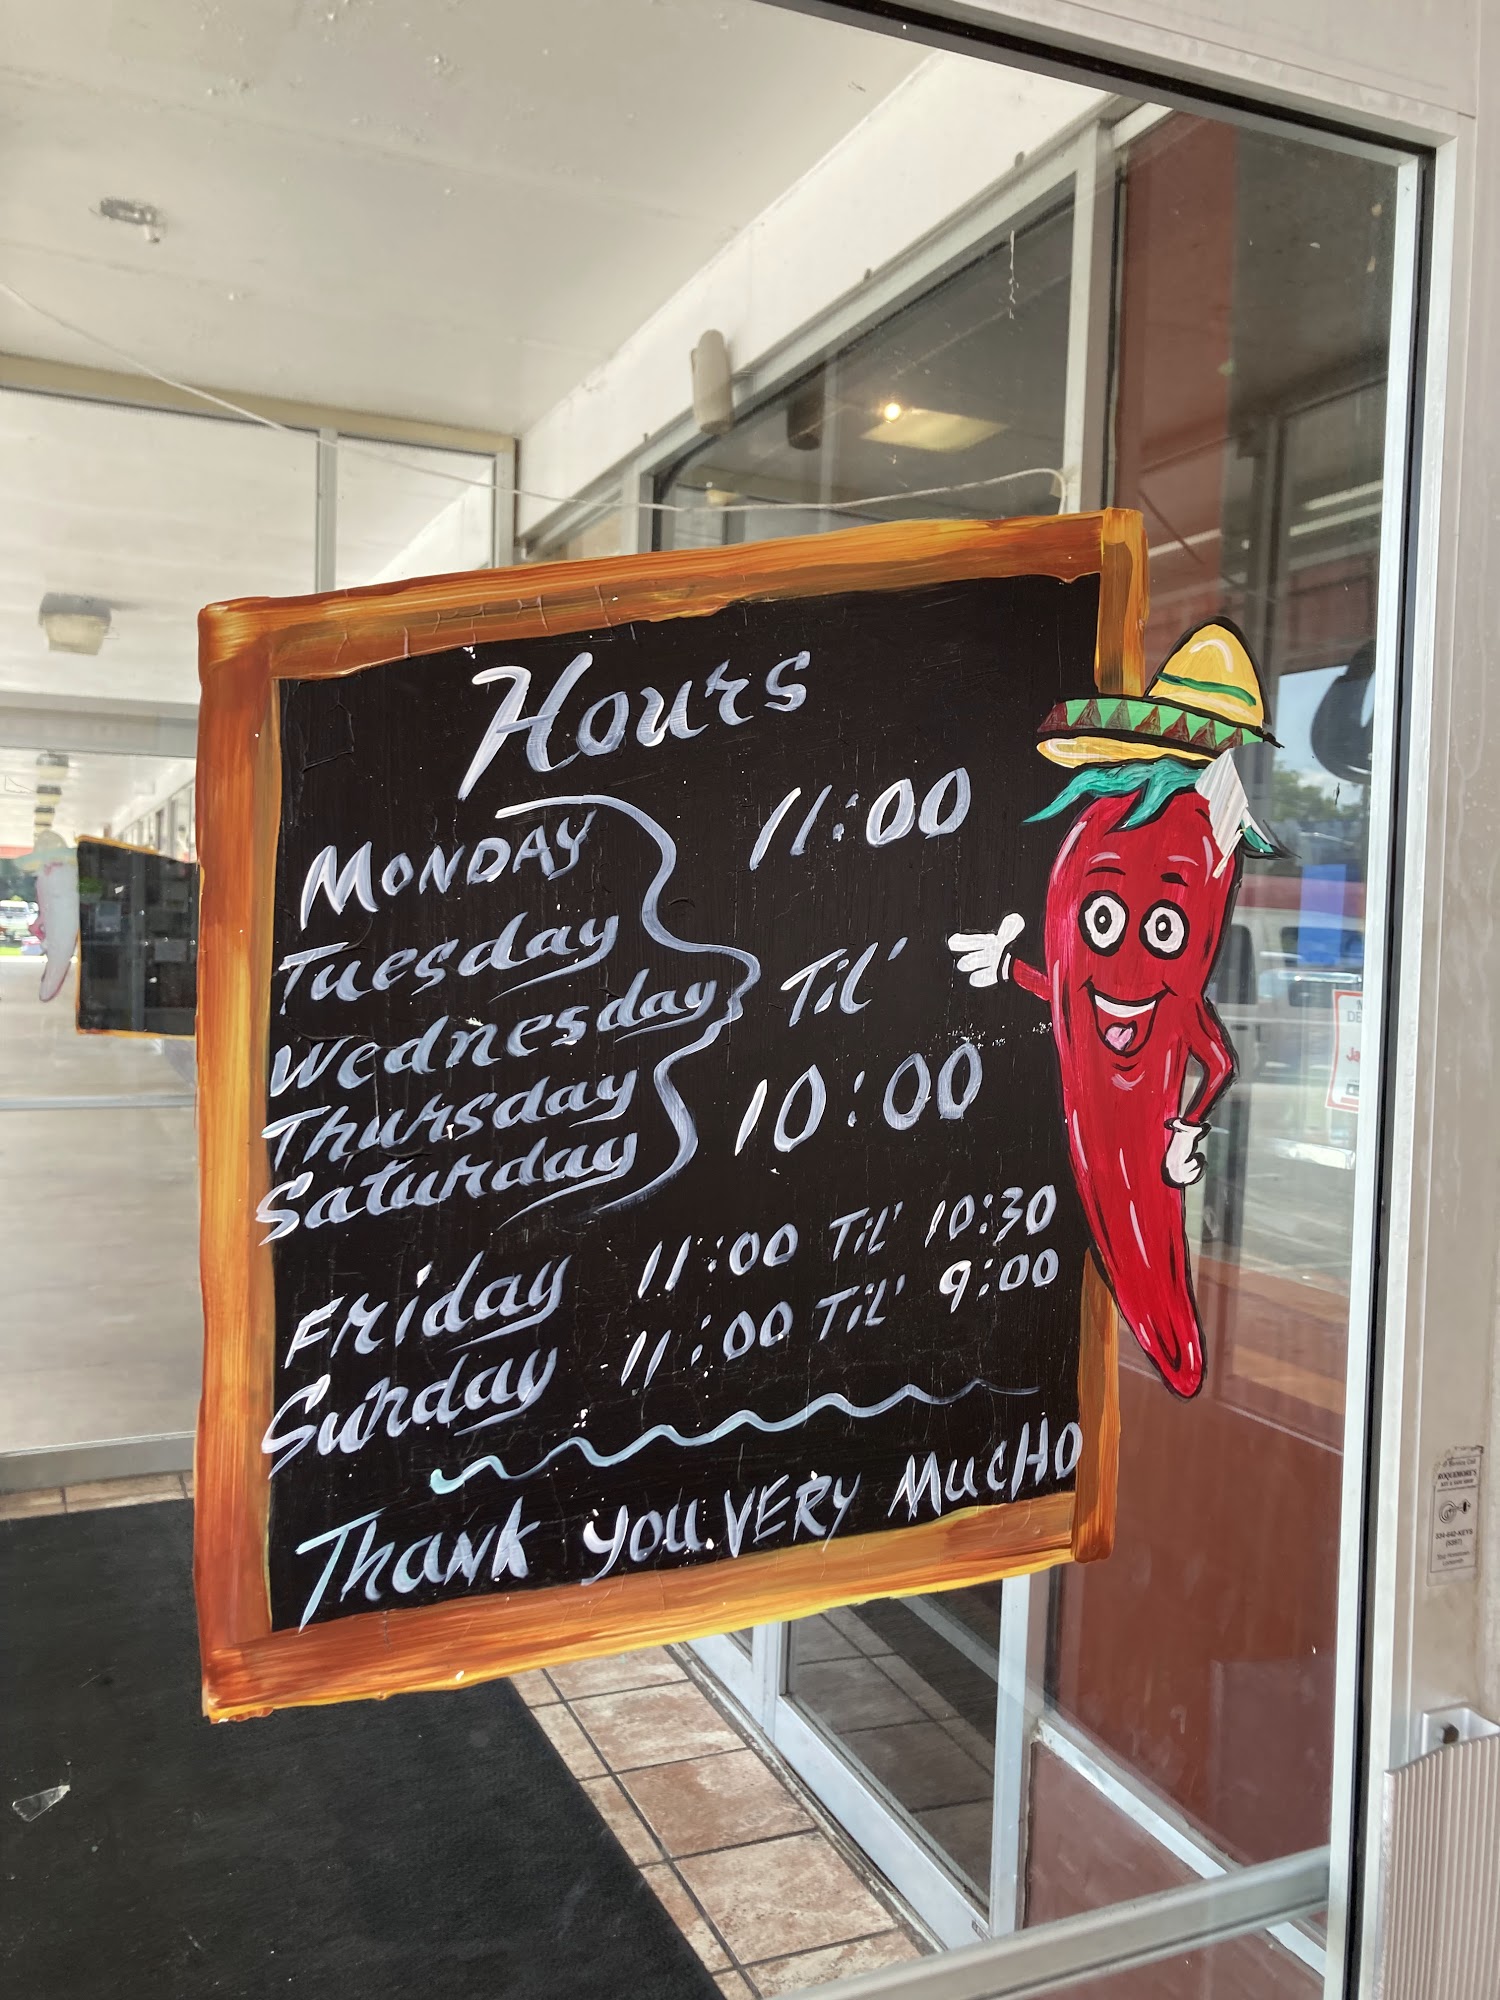 Hours
MONDAY
Tuesday
Wednesday
Thursday
Saturday
11:00
Til'
10:00
Friday 11:00 Til' 10:30
Sunday 11:00 Til' 9:00
Thank you VERY MucHO